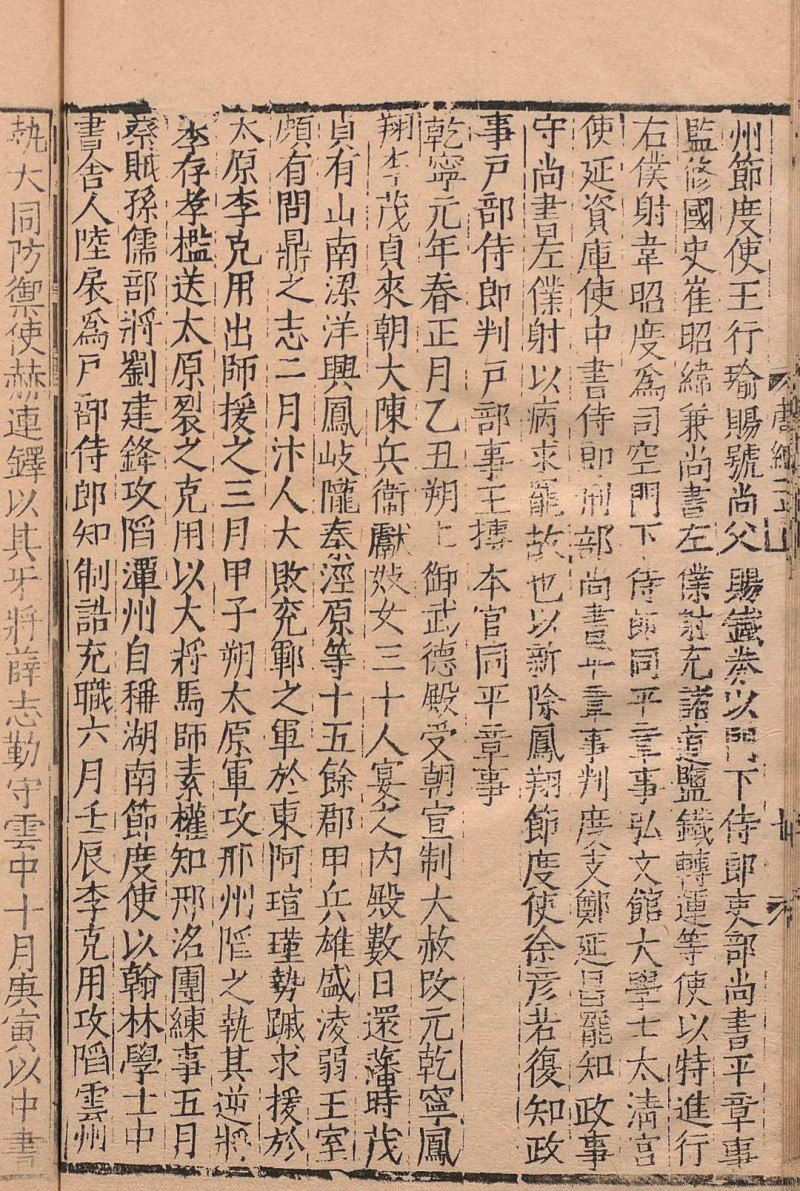 州節度使王行瑜賜號尚父賜鐵券以門下侍郎吏部尚書平章事
監修國史崔昭緯兼尚書左僕射充諸道鹽鐵轉運等使以特進行
右僕射韋昭度爲司空門下侍郎同平章事弘文館大學士太清宮
使延資庫使中書侍郎刑部尚書平章事判度支鄭延昌罷知政事
守尚書左僕射以病求罷故也以新除鳳翔節度使徐彦若復知政
事戸部侍郎判戸部事王摶本官同平章事
乾寧元年春正月乙丑朔上御武德殿受朝宣制大赦改元乾寧鳳
翔李茂貞來朝大陳兵衞獻妓女三十人宴之内殿數日還藩時茂
貞有山南梁洋興鳳岐隴秦涇原等十五餘郡甲兵雄盛淩弱王室
頗有問鼎之志二月汴人大敗兖鄆之軍於東阿瑄瑾勢蹙求援於
太原李克用出師援之三月甲子朔太原軍攻邢州陷之執其逆將
李存孝檻送太原裂之克用以大將馬師素權知邢洺團練事五月
蔡賊孫儒部將劉建鋒攻陷潭州自稱湖南節度使以翰林學士中
書舍人陸扆爲戸部侍郎知制誥充職六月壬辰李克用攻陷雲州
執大同防禦使赫連鐸以其牙將薛志勤守雲中十月庚寅以中書